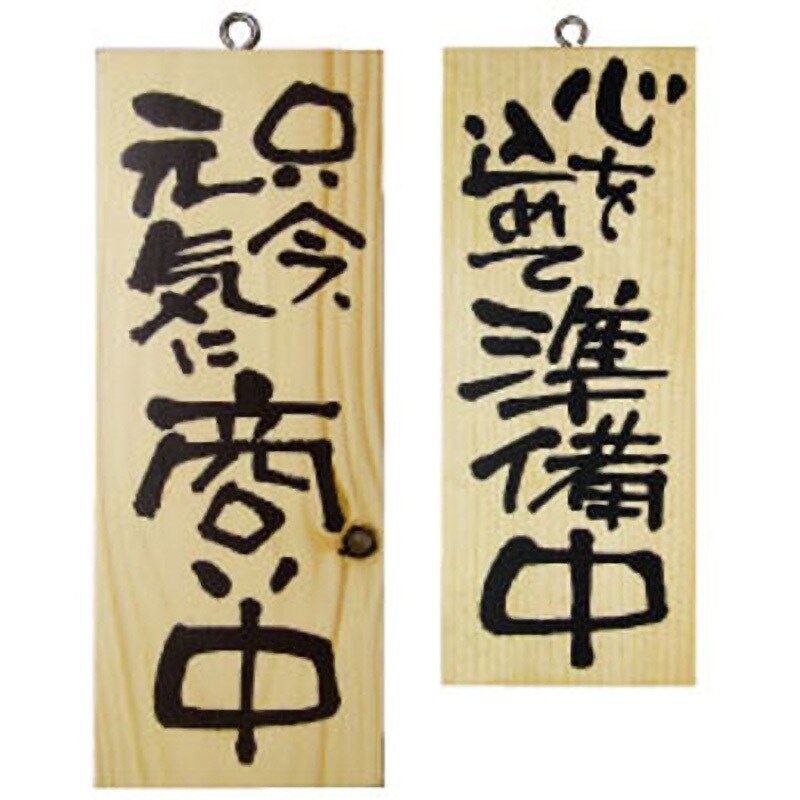 只今、
元気に
商い中
心を
込めて
準備
中